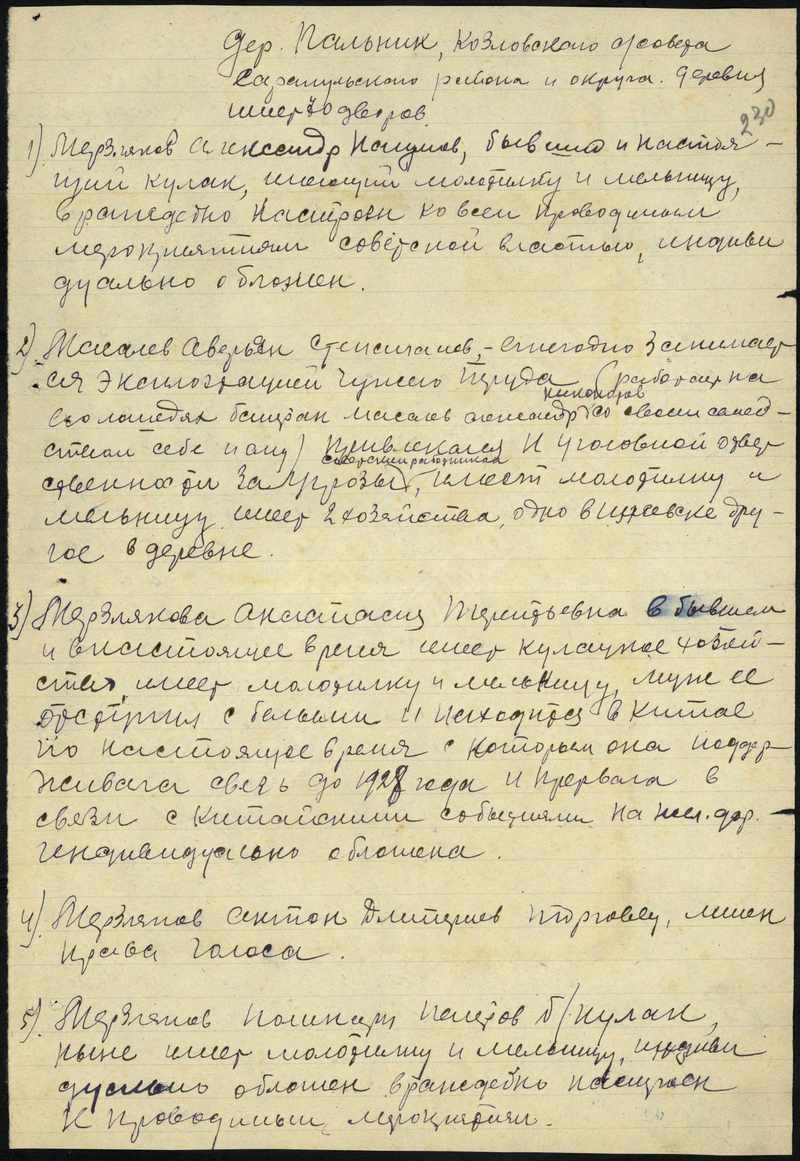 дер. Пальник, Козловского с/совета
Сарапульского района и округа. Деревня
имеет 70 дворов.
230
1) Мерзляков Александр Наумов, бывший и настоя-
щий кулак, имеющий молотилку и мельницу,
враждебно настроен ко всем проводимым
мероприятиям советской властью, индиви
дуально обложен.
2) Масалев Аверьян – ежегодно занимает
ся эксплоатацией чужего труда (работает на
его лошадях батрак Масалев Александр со своим
привлекался к уголовной ответ
советским работникам
ственности за угрозы, имеет молотилку и
мельницу имеет 2 хозяйства, одно в Ижевске дру-
гое в деревне.
3) Мерзлякова Анастасия Терентьевна в бывшем
и в настоящее время имеет кулацкое хозяй-
ство, имеет молотилку и мельницу, муж ее
отступил с белыми и находится в Китае
по настоящее время с которым она поддер-
живала связь до 1928 года и прервала в
связи с Китайскими событиями на жел. дор. –
индивидуально обложена.
4) Мерзляков Антон Дмитриев торговец, лишен
права голоса.
5) Мерзляков б/кулак,
ныне имеет молотилку и мельницу, индиви
дуально обложен враждебно настроен
к проводимым мероприятиям.